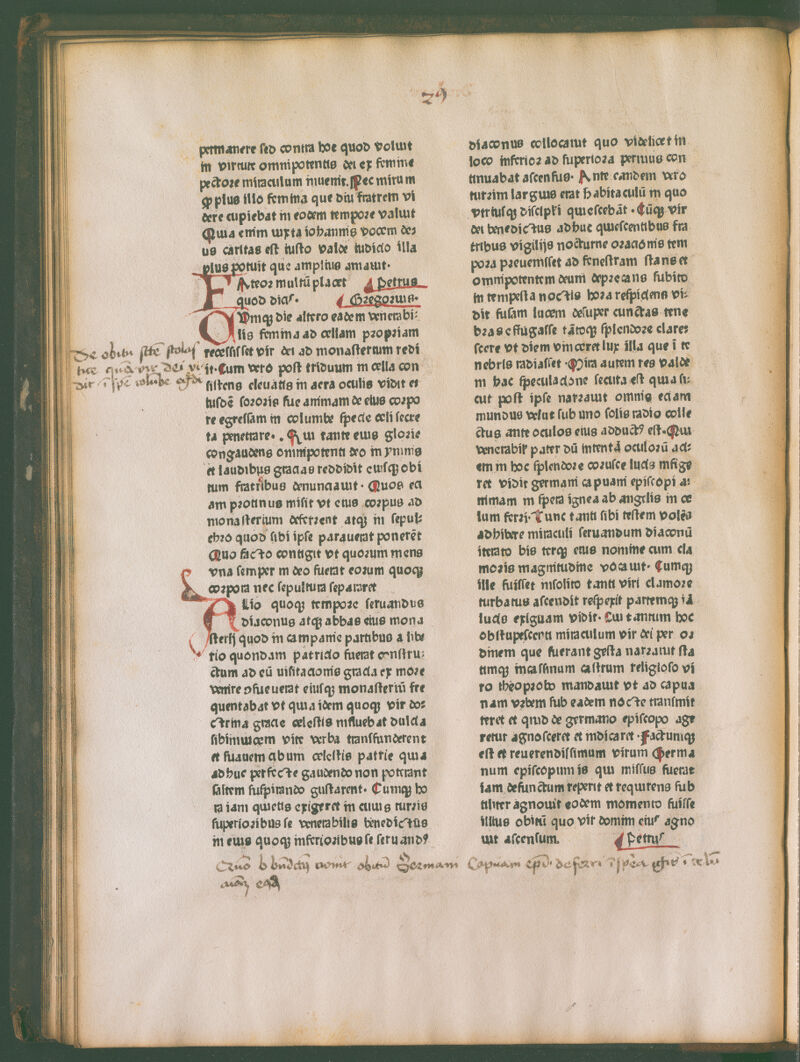 29
permanere sed contra hoc quod voluit
in virtute omnipotentis dei ex femine
pectore miraculum inuenit. Nec mirum
ꝙ plus illo femina que diu fratrem vi
dere cupiebat in eodem tempore valuit
Quia enim iuxta iohannis vocem de⸗
us caritas est iusto valde iudicio illa
plus potuit que amplius amauit.
FAteor multū placet Petrus
quod dicis. Gregorius.
CUmqꝫ die altero eadem venerabi⸗
lis femina ad cellam propriam
recessisset vir dei ad monasterium redi
it. Cum vero post triduum in cella con
sistens eleuatis in aera oculis vidit et
iusdē sororis sue animam de eius corpo
re egressam in columbe specie celi secre
ta penetrare. Qui tante eius glorie
congaudens omnipotenti deo in ymnis
et laudibus gracias reddidit eiusqꝫ obi
tum fratribus denunciauit. Quos eci
am protinus misit vt eius corpus ad
monasterium deferrent atqꝫ in sepul⸗
chro quod sibi ipse parauerat ponerēt
Quo facto contigit vt quorum mens
vna semper in deo fuerat eorum quoqꝫ
corpora nec sepultura separaret
ALio quoqꝫ tempore seruandus
diaconus atqꝫ abbas eius mona
sterij quod in campanie partibus a libe
rio quondam patricio fuerat constru⸗
ctum ad eū uisitacionis gracia ex more
venire ꝯsueuerat eiusqꝫ monasteriū fre
quentabat vt quia idem quoqꝫ vir doc⸗
ctrina gracie celestis influebat dulcia
sibiinuicem vite verba transfunderent
et suauem cibum celestis patrie quia
adhuc perfecte gaudendo non poterant
saltem suspirando gustarent. Cumqꝫ ho
ra iam quietis exigeret in cuius turris
superioribus se venerabilis benedictus
in eius quoqꝫ inferioribus se seruandꝰ
diaconus collocauit quo videlicet in
loco inferior ad superiora peruius con
tinuabat ascensus. Ante eandem vero
turrim largius erat habitaculū in quo
vtriusqꝫ discipli quiescebāt. Cūqꝫ vir
dei benedictus adhuc quiescentibus fra
tribus vigilijs nocturne oracionis tem
pora preuenisset ad fenestram stans et
omnipotentem deum deprecans subito
in tempesta noctis hora respiciens vi⸗
dit fusam lucem desuper cunctas tene
bras effugasse tātoqꝫ splendore clares⸗
scere vt diem vinceret lux illa que i te
nebris radiasset. Mira autem res valde
in hac speculacione secuta est quia si⸗
cut post ipse narrauit omnis eciam
mundus velut sub uno solis radio colle
ctus ante oculos eius adductꝰ est. Qui
venerabilˀ pater dū intentā oculorū aci⸗
em in hoc splendore corusce lucis infige
ret vidit germani capuani episcopi a⸗
nimam in spera ignea ab angelis in ce
lum ferri. Tunc tanti sibi testem volēs
adhibere miraculi seruandum diaconū
iterato bis terqꝫ eius nomine cum cla
moris magnitudine vocauit. Cumqꝫ
ille fuisset insolito tanti viri clamore
turbatus ascendit respexit partemqꝫ
lucis exiguam vidit. Cui tantum hoc
obstupescenti miraculum vir dei per or
dinem que fuerant gesta narrauit sta
timqꝫ in cassinum castrum religioso vi
ro theoprobo mandauit vt ad capua
nam vrbem sub eadem nocte transmit
teret et quid de germano episcopo age
retur agnosceret et indicaret. Factumqꝫ
est et reuerendissimum virum Germa
num episcopum is qui missus fuerat
iam defunctum reperit et requirens sub
tiliter agnouit eodem momento fuisse
illius obitū quo vir domini eiusˀ agno
uit ascensum. Petrus
De obitu sctē scolas
tice quā vir dei vi
dit i spē columbe
Quō b bndctꝰ vidit obitū Germani Capuani epī deferri i spera ignea i celū